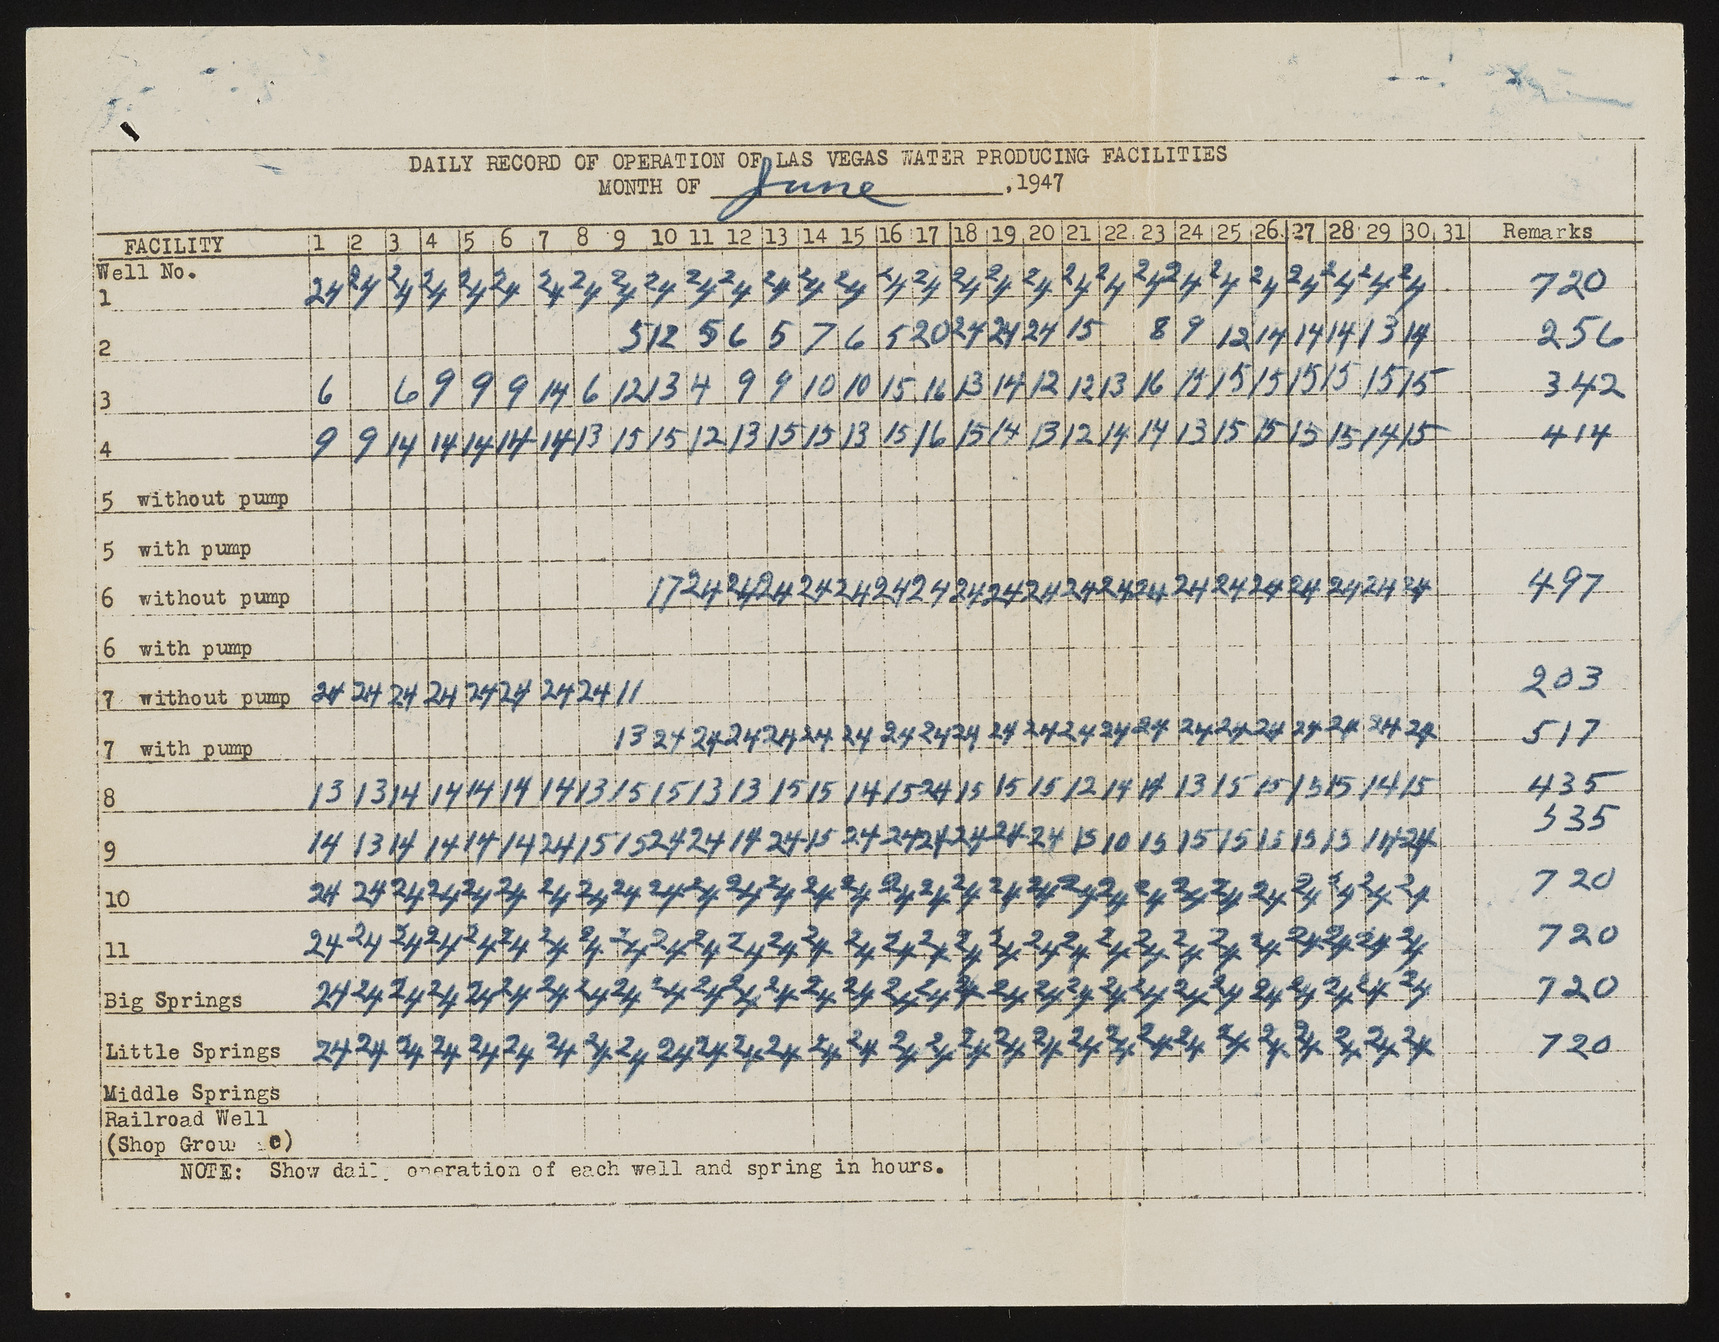 DAILY RECORD OF OPERATION OF LAS VEGAS WATER PRODUCING FACILITIES
MONTH OF June , 1947
FACILITY 1 2 3 4 5 6 7 8 9 10 11 12 13 14 15 16 17 18 19 20 21 22 23 24 25 26 27 28 29 30 31 Remarks
Well No.
1 24 24 24 24 24 24 24 24 24 24 24 24 24 24 24 24 24 24 24 24 24 24 24 24 24 24 24 24 24 24 720
2 5 12 5 6 5 7 6 5 20 24 24 24 15 8 9 12 14 14 14 13 14 256
3 6 6 9 9 9 14 6 12 13 4 9 9 10 10 15 16 13 14 12 12 13 16 15 15 15 15 15 15 15 342
4 9 9 14 14 14 14 14 13 15 15 12 13 15 15 13 15 16 15 14 13 12 14 14 13 15 15 15 15 14 15 414
5 without pump
5 with pump
6 without pump 17 24 24 24 24 24 24 24 24 24 24 24 24 24 24 24 24 24 24 24 24 497
6 with pump
7 without pump 24 24 24 24 24 24 24 24 11 203
7 with pump 13 24 24 24 24 24 24 24 24 24 24 24 24 24 24 24 24 24 24 24 24 24 517
8 13 13 14 14 14 14 14 13 15 15 13 13 15 15 14 15 24 15 15 15 12 14 14 13 15 15 15 15 14 15 435
9 14 13 14 14 14 14 24 15 15 24 24 14 24 15 24 24 24 24 24 24 15 10 15 15 15 15 15 15 14 24 535
10 24 24 24 24 24 24 24 24 24 24 24 24 24 24 24 24 24 24 24 24 24 24 24 24 24 24 24 24 24 24 720
11 24 24 24 24 24 24 24 24 24 24 24 24 24 24 24 24 24 24 24 24 24 24 24 24 24 24 24 24 24 24 720
Big Springs 24 24 24 24 24 24 24 24 24 24 24 24 24 24 24 24 24 24 24 24 24 24 24 24 24 24 24 24 24 24 720
Little Springs 24 24 24 24 24 24 24 24 24 24 24 24 24 24 24 24 24 24 24 24 24 24 24 24 24 24 24 24 24 24 720
Middle Springs
Railroad Well
(Shop
NOTE: Show operation of each well and spring in hours.